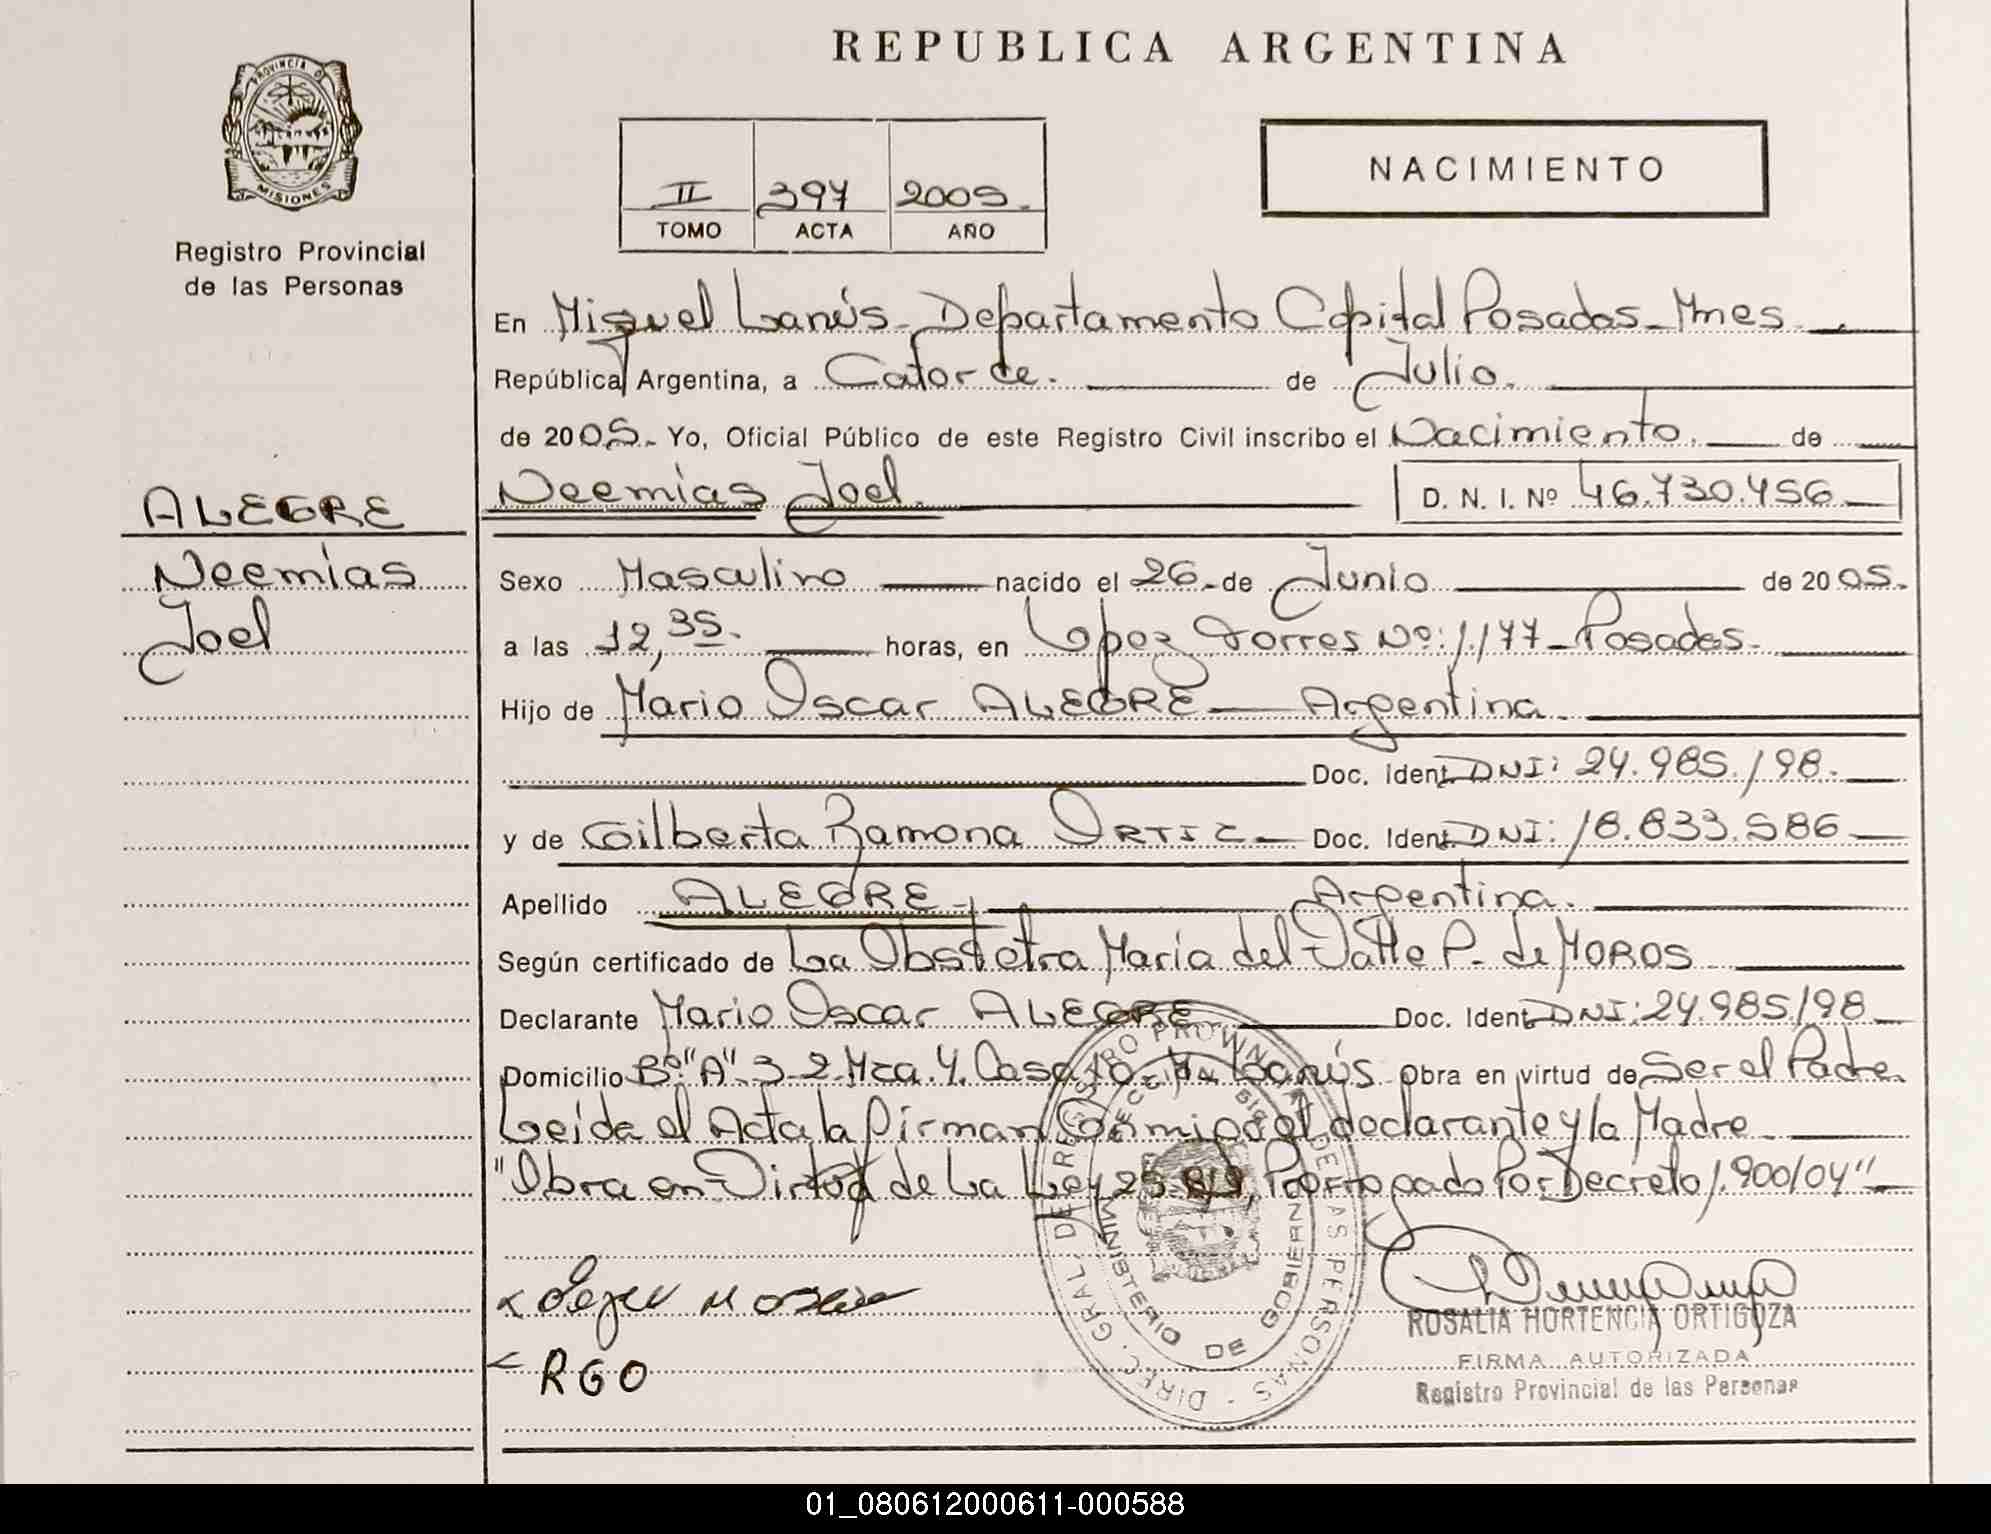 REPUBLICA ARGENTINA
PROVINCIA DE
MISIONES
Registro Provincial
de las Personas
II 397 2005.
TOMO ACTA AÑO
NACIMIENTO
En Miguel Lanús - Departamento Capital Posadas - Mnes.
República Argentina, a Catorce. de Julio.
de 2005.- Yo, Oficial Público de este Registro Civil inscribo el Nacimiento. de
ALEGRE
Neemías Joel. D. N. I. Nº 46.730.456
Neemías
Joel
Sexo Masculino nacido el 26.- de Junio de 2005.
a las 12,35. horas, en Lopez Torres Nº: 1177 - Posadas.
Hijo de Mario Oscar ALEGRE Argentina.
Doc. Ident. DNI: 24.985.198.
y de Gilberta Ramona ORTIZ Doc. Ident. DNI: 18.833.586
Apellido ALEGRE, Argentina.
Según certificado de La Obstetra María del Valle P. de MOROS
Declarante Mario Oscar ALEGRE Doc. Ident. DNI: 24.985.198
Domicilio Bº "A" 3-2 Mza. 4. Casa 10 M. Lanús Obra en virtud de Ser el Padre
Leída el Acta la firman Conmigo el declarante y la Madre
"Obra en Virtud de La Ley 25.819, Prorrogado Por Decreto 1.900/04"
RGO
DIREC. GRAL. DE REGISTRO PROVINCIAL DE LAS PERSONAS
MINISTERIO DE GOBIERNO
ROSALIA HORTENCIA ORTIGOZA
FIRMA AUTORIZADA
Registro Provincial de las Personas
01_080612000611-000588